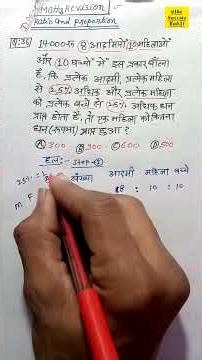 Maths Revision
Ratio and proportion
Q.36) 14000 रु 8 आदमियों, 10 महिलाओं
और 10 बच्चों में इस प्रकार बाँटा
है, कि प्रत्येक आदमी, प्रत्येक महिला
से 25% अधिक और प्रत्येक महिला
को प्रत्येक बच्चे से 25% अधिक
धन प्राप्त होता है, तो एक महिला को कितना
धन (रुपया) प्राप्त हुआ ?
A 300 B 900 C 600 D 500
हल:- Step-①
25% = संख्या आदमी महिला बच्चे
M F 8 : 10 : 10